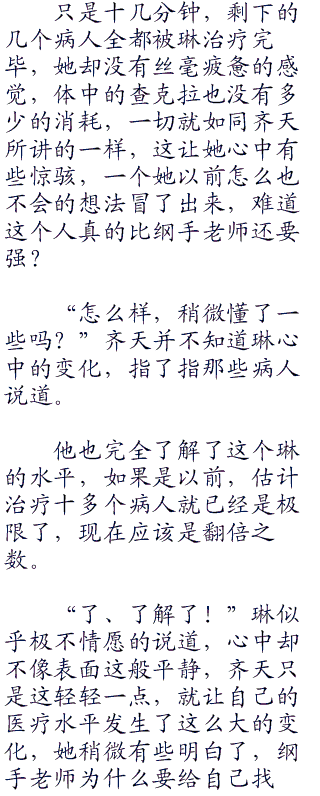 只是十几分钟，剩下的
几个病人全都被琳治疗完
毕，她却没有丝毫疲惫的感
觉，体中的查克拉也没有多
少的消耗，一切就如同齐天
所讲的一样，这让她心中有
些惊骇，一个她以前怎么也
不会的想法冒了出来，难道
这个人真的比纲手老师还要
强？
“怎么样，稍微懂了一
些吗？”齐天并不知道琳心
中的变化，指了指那些病人
说道。
他也完全了解了这个琳
的水平，如果是以前，估计
治疗十多个病人就已经是极
限了，现在应该是翻倍之
数。
“了、了解了！”琳似
乎极不情愿的说道，心中却
不像表面这般平静，齐天只
是这轻轻一点，就让自己的
医疗水平发生了这么大的变
化，她稍微有些明白了，纲
手老师为什么要给自己找